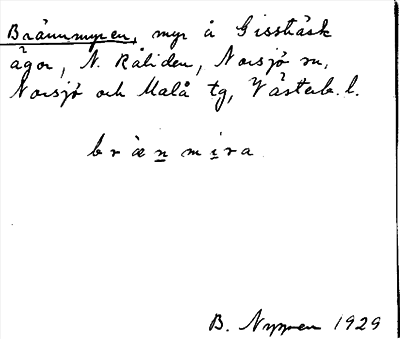 Brännmyren, myr å Gissträsk
ägor, N. Råliden, Norsjö sn,
Norsjö och Malå tg, Västerb. l.
bræn mira
B. Nyman 1929